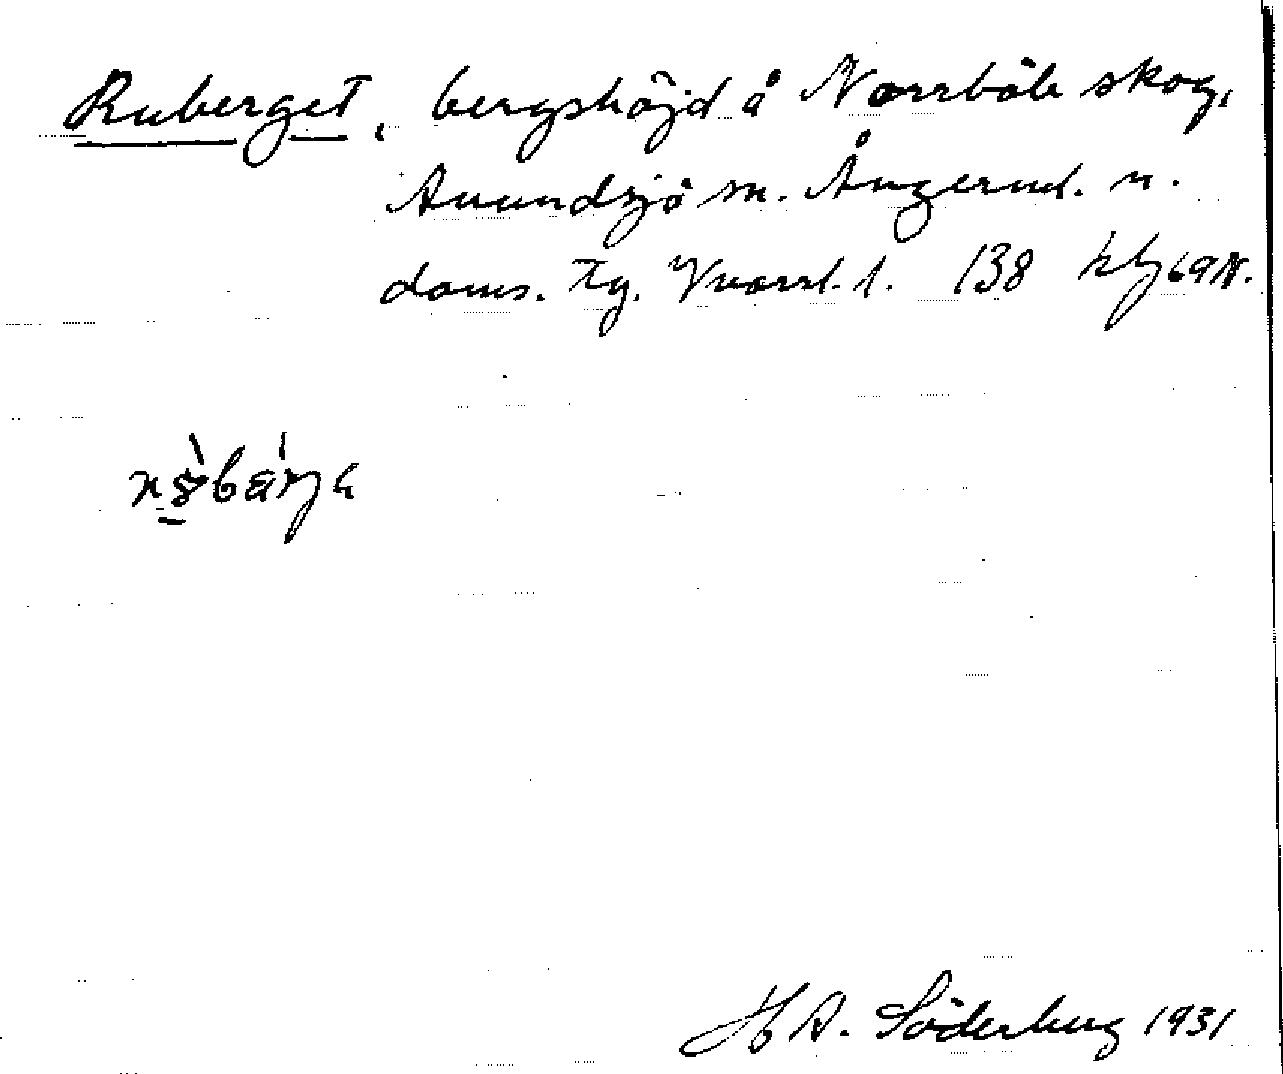 Ruberget, bergshöjd å Norrböle skog,
Anundsjö sn. Ångerml. n.
doms. tg. Vnorrl. l. 138
H A. Söderberg 1931